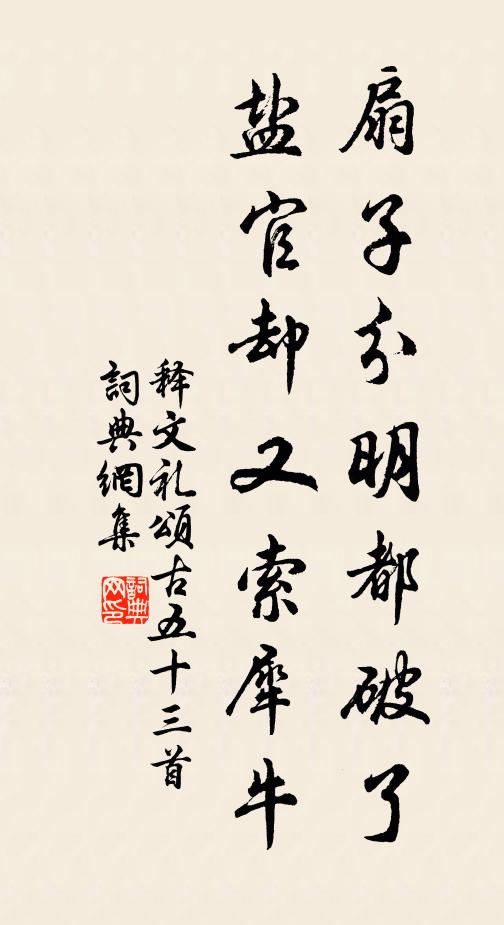 扇子分明都破了
盐官却又索犀牛
释文礼頌古五十三首
詞典網集
詞典网印